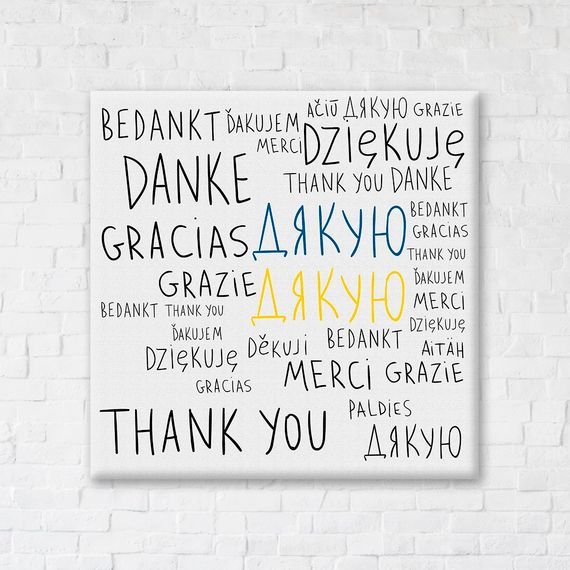 BEDANKT ĎAKUJEM AČIŪ ДЯКУЮ GRAZIE
MERCI DZIĘKUJĘ
DANKE THANK YOU DANKE
GRACIAS ДЯКУЮ BEDANKT
GRACIAS
THANK YOU
GRAZIE ДЯКУЮ ĎAKUJEM
MERCI
BEDANKT THANK YOU DZIĘKUJĘ
ĎAKUJEM BEDANKT
DZIĘKUJĘ DĚKUJI AITÄH
GRACIAS MERCI GRAZIE
THANK YOU PALDIES
ДЯКУЮ